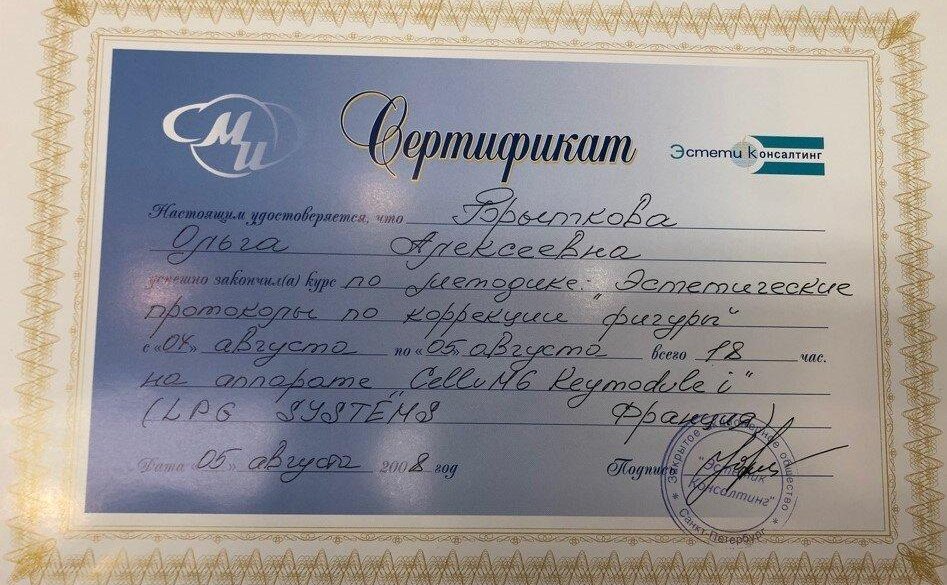 МИ
Сертификат
Эстетик Консалтинг
Настоящим удостоверяется, что Брыткова
Ольга Алексеевна
успешно закончил(а) курс по методике: "Эстетические
протоколы по коррекции фигуры"
с «04» августа по «05» августа всего 18 час.
на аппарате "Cellu M6 Keymodule i"
(LPG SYSTEMS Франция)
Дата «05» августа 2008 год Подпись
Закрытое акционерное общество
"Эстетик
Консалтинг"
* Санкт-Петербург *